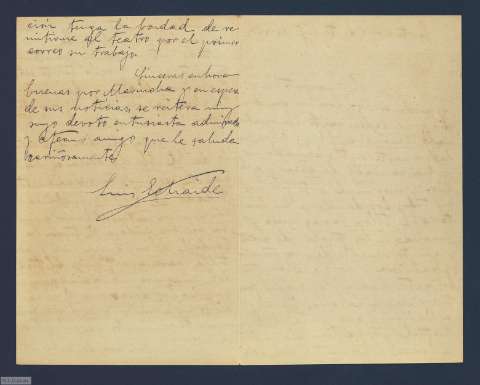 ción tenga la bondad de re
mitirme al teatro por el primer
correo su trabajo.
Sinceras enhora
buenas por Marinela y en espera
de sus noticias, se reitera muy
suyo devoto entusiasta admirador
y afcmo. amigo que le saluda
cariñosamente
Luis Echaide